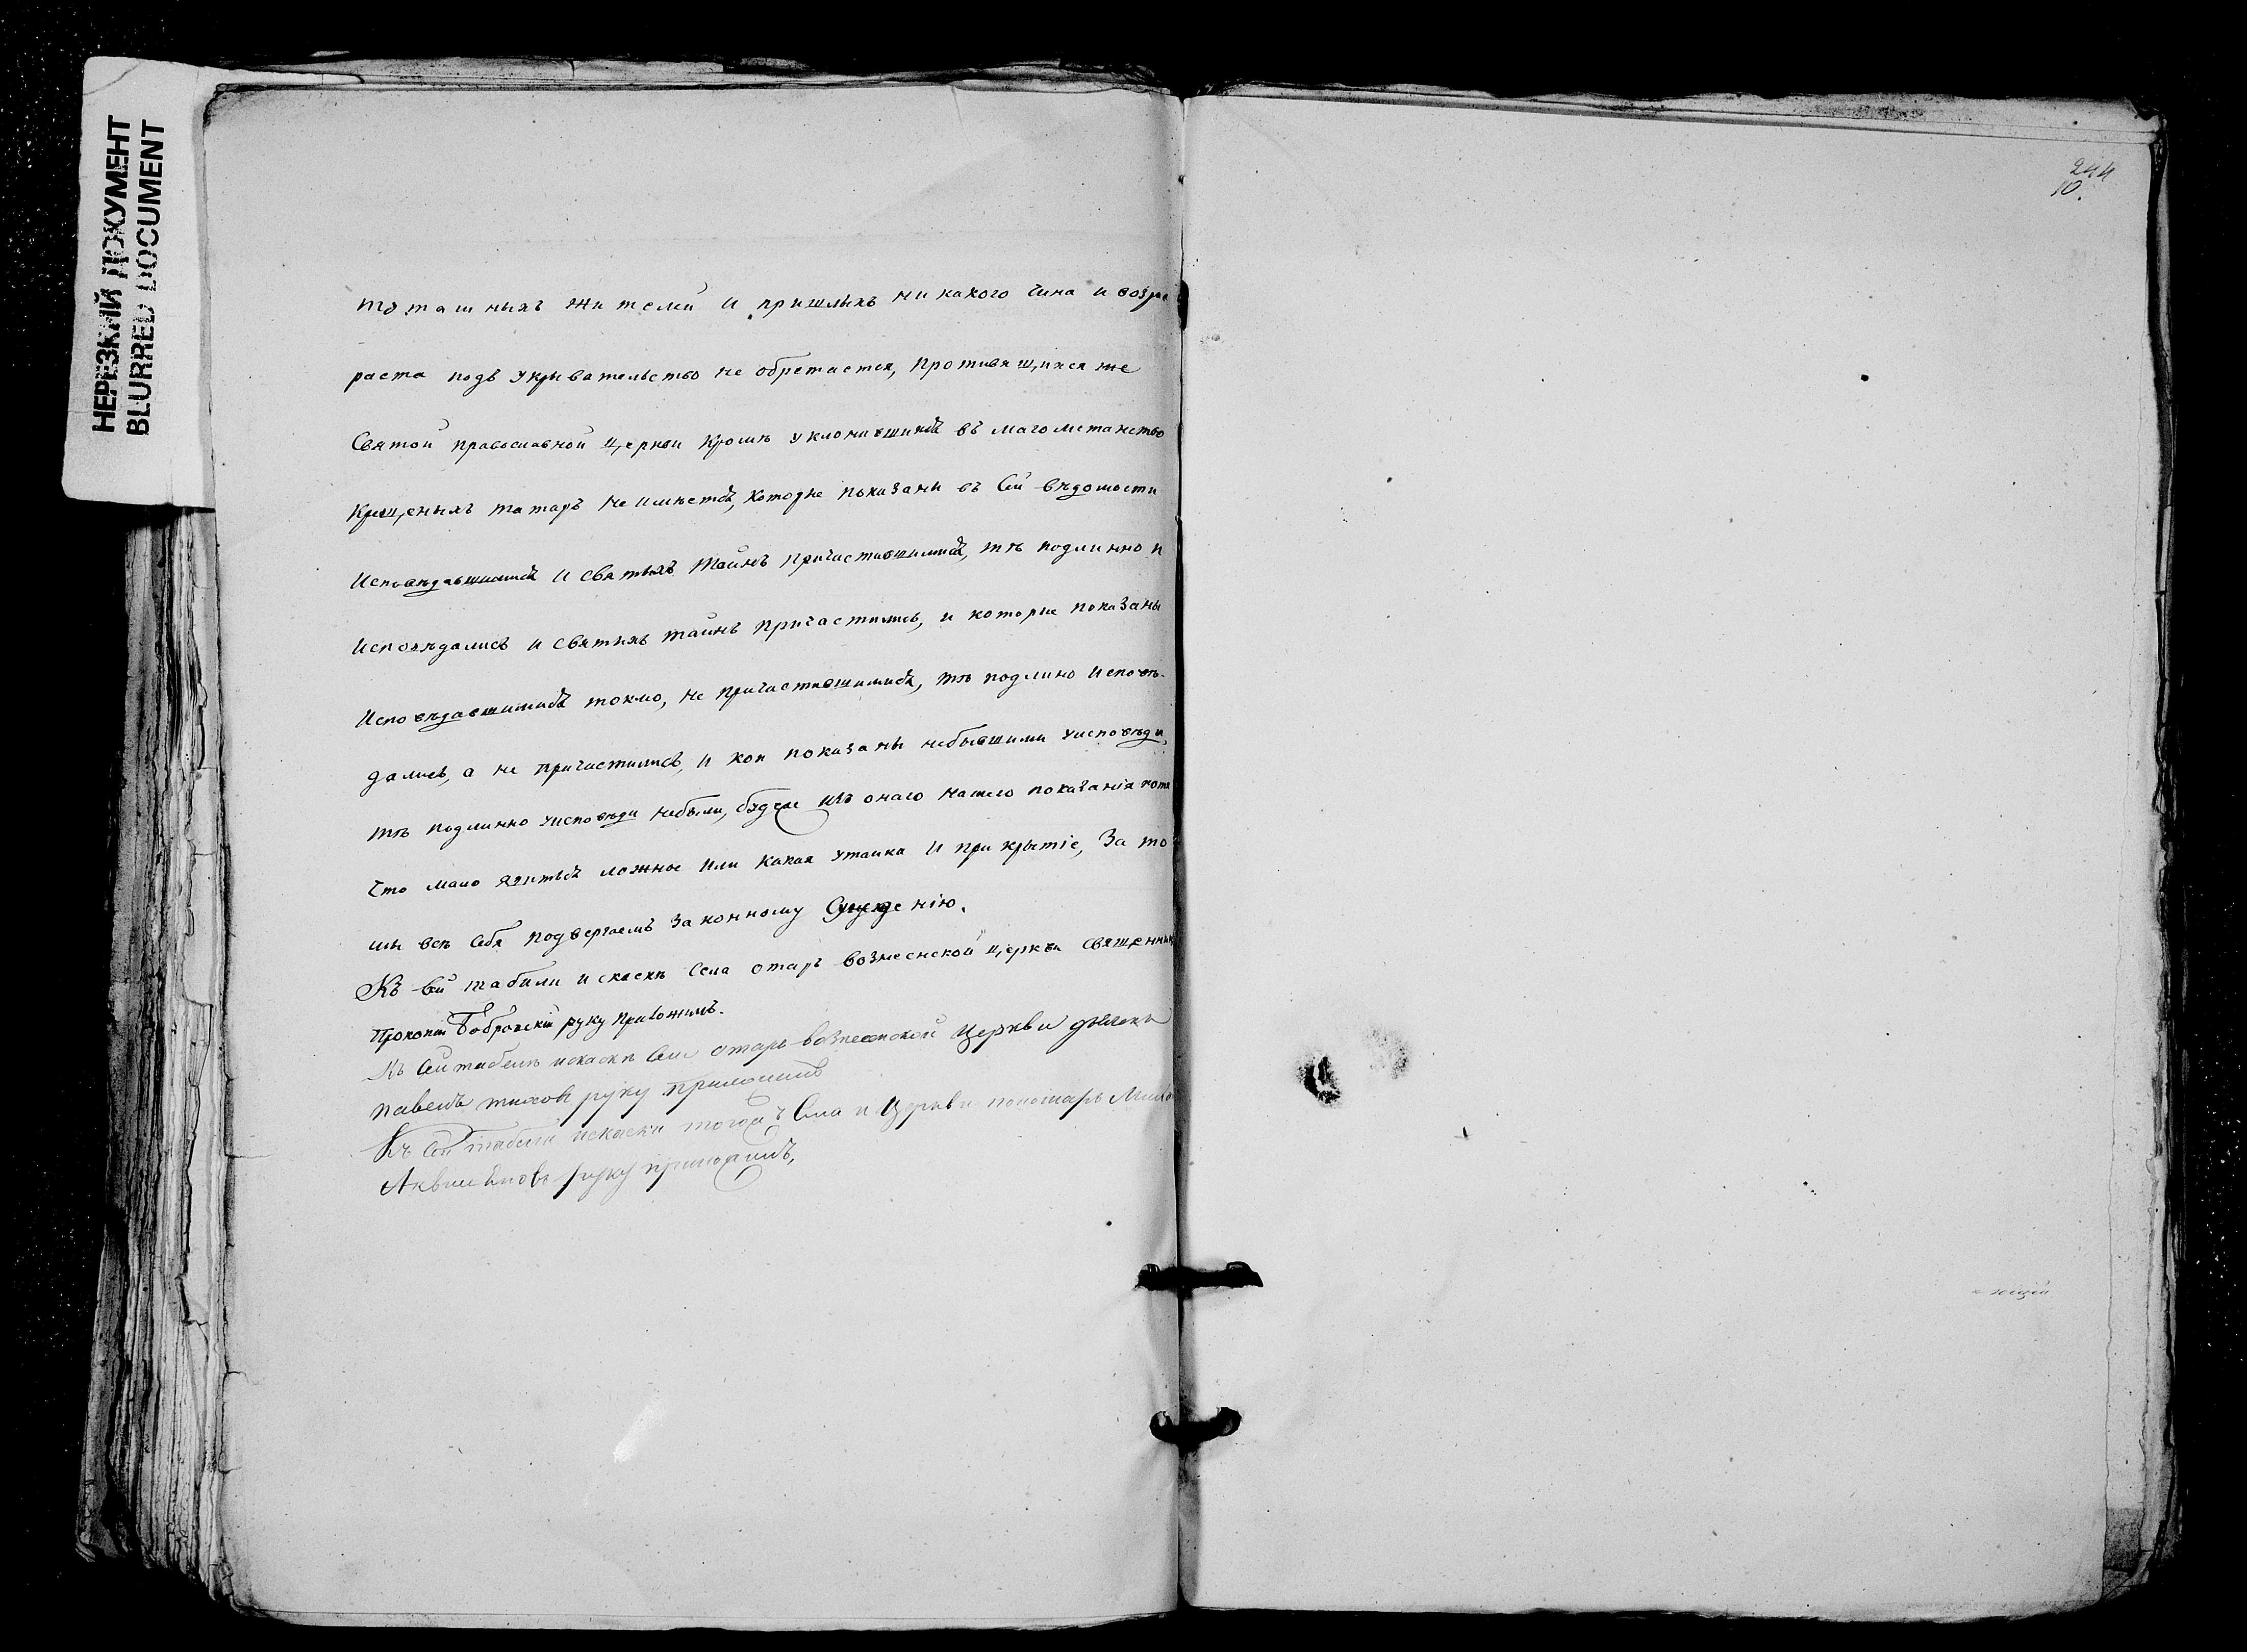 НЕРЕЗКИЙ ДОКУМЕНТ
BLURRED DOCUMENT
244
10.
тоташныхъ жителей и пришлыхъ никакого чина и возра
раста подъ укрывательство не обретается, противящихся же
Святой православной церкви кромѣ уклонившихся въ магометанство
крещеныхъ татаръ не имѣется, которые показаны въ сей вѣдомости
исповѣдавшимися и святыхъ таинъ причастившимися, тѣ подлинно и
исповѣдались и святыхъ таинъ причастились, и которые показаны
исповѣдавшимися токмо, не причастившимися, тѣ подлино исповѣ-
дались, а не причастились, и кои показаны небывшими уисповѣди,
тѣ подлинно уисповѣди небыли, будеже изъ онаго нашего показанія
что мало явится ложное или какая утайка и прикрытіе, за то
мы всѣ себя подвергаемъ законному Суждению.
Къ сей табели искаскѣ села отаръ вознесенской церкви священникъ
Прокопий Бобровский руку приложилъ.
Къ сей табелѣ искаскѣ села отаръ вознесенской церкви дьячокъ
павелъ тиховъ руку приложилъ
Къ сей табели искаски тогожъ села и церкви пономарь
руку приложилъ,